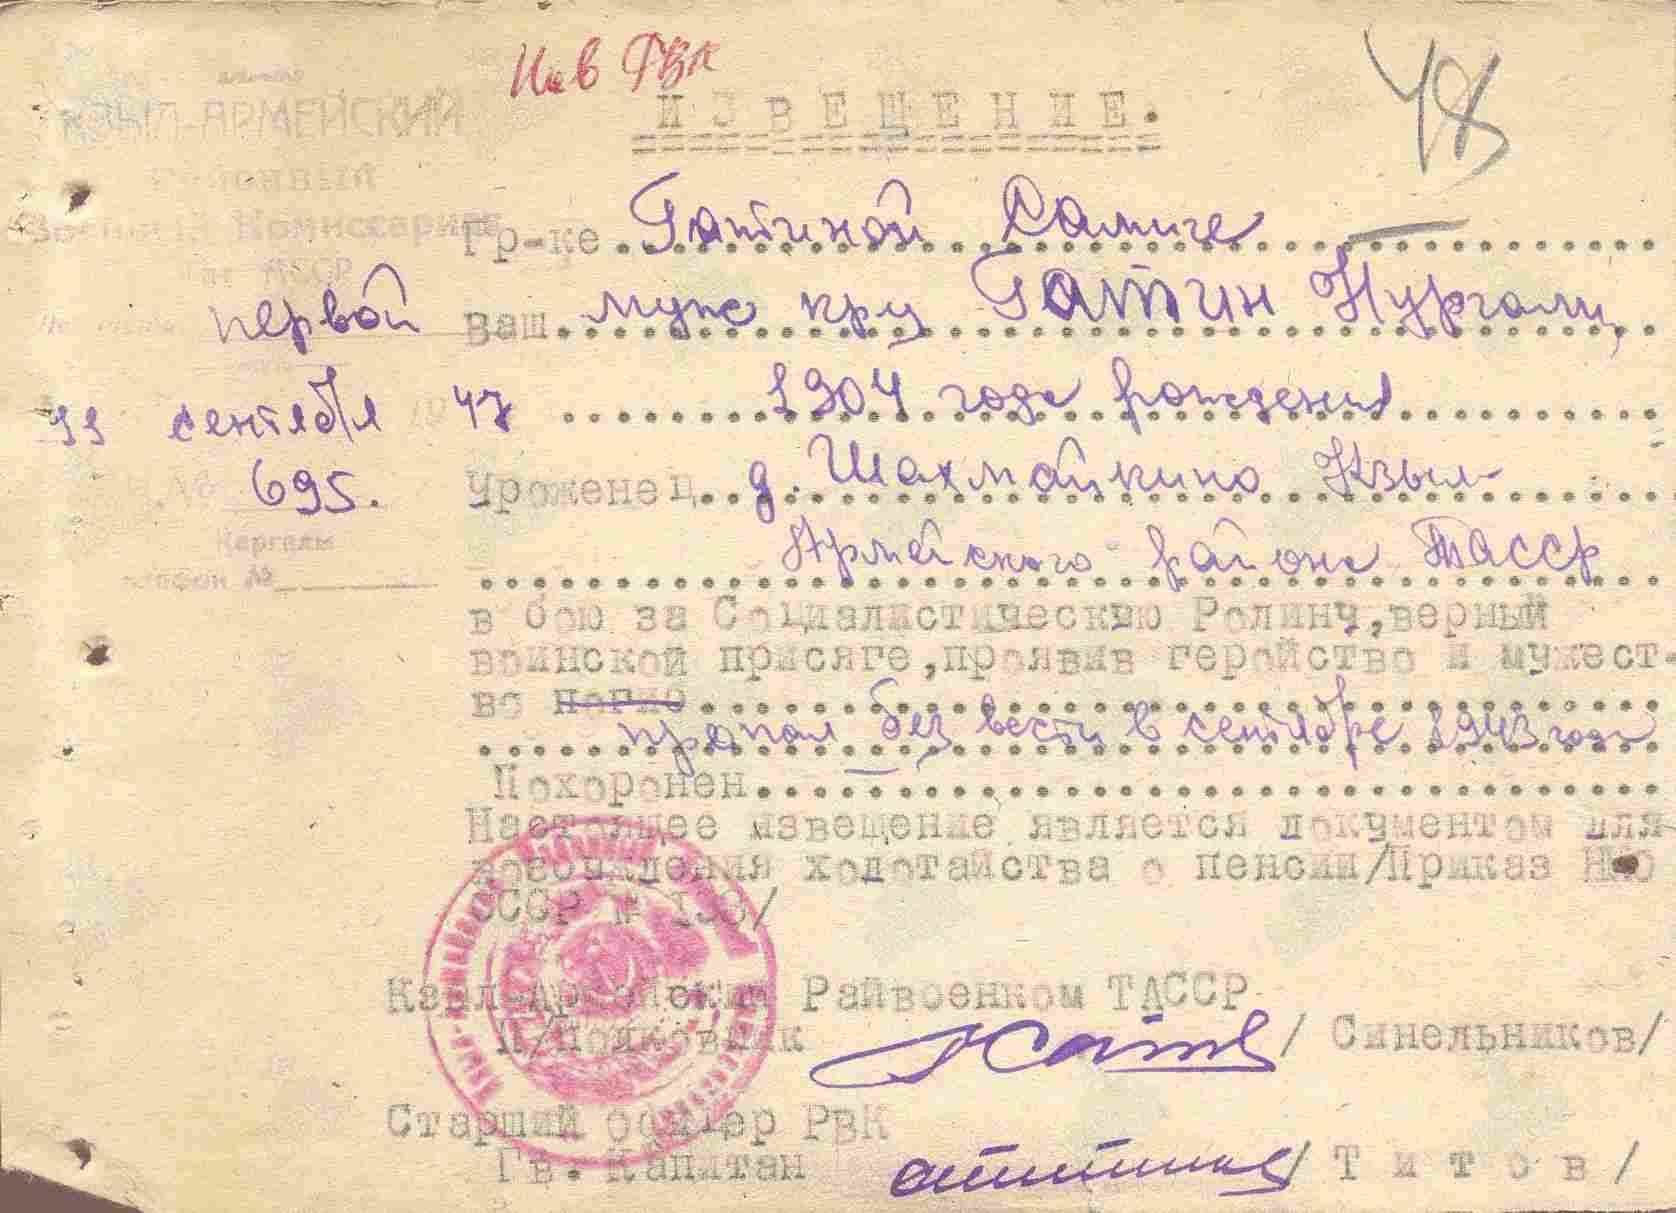 КЗЫЛ-АРМЕЙСКИЙ
Районный
Военный Комиссариат
первой
11 сентября 1947
№ 695.
Каргалы
телефон №
48
ИЗВЕЩЕНИЕ.
Гр-ке Гатиной Самиге
ваш муж кр-ц Гатин Нургали,
1904 года рождения
Уроженец д. Шахмайкино Кзыл-
Армейского района ТАССР
в бою за Социалистическую Родину, верный
воинской присяге, проявив геройство и мужест-
во погиб
пропал без вести в сентябре 1943 года
Похоронен —
Настоящее извещение является документом для
возбуждения ходотайства о пенсии/Приказ НКО
СССР № 138/
Кзыл-Армейский Райвоенком ТАССР
П/Полковник / Синельников/
Старший офицер РВК
Гв. Капитан / Титов /